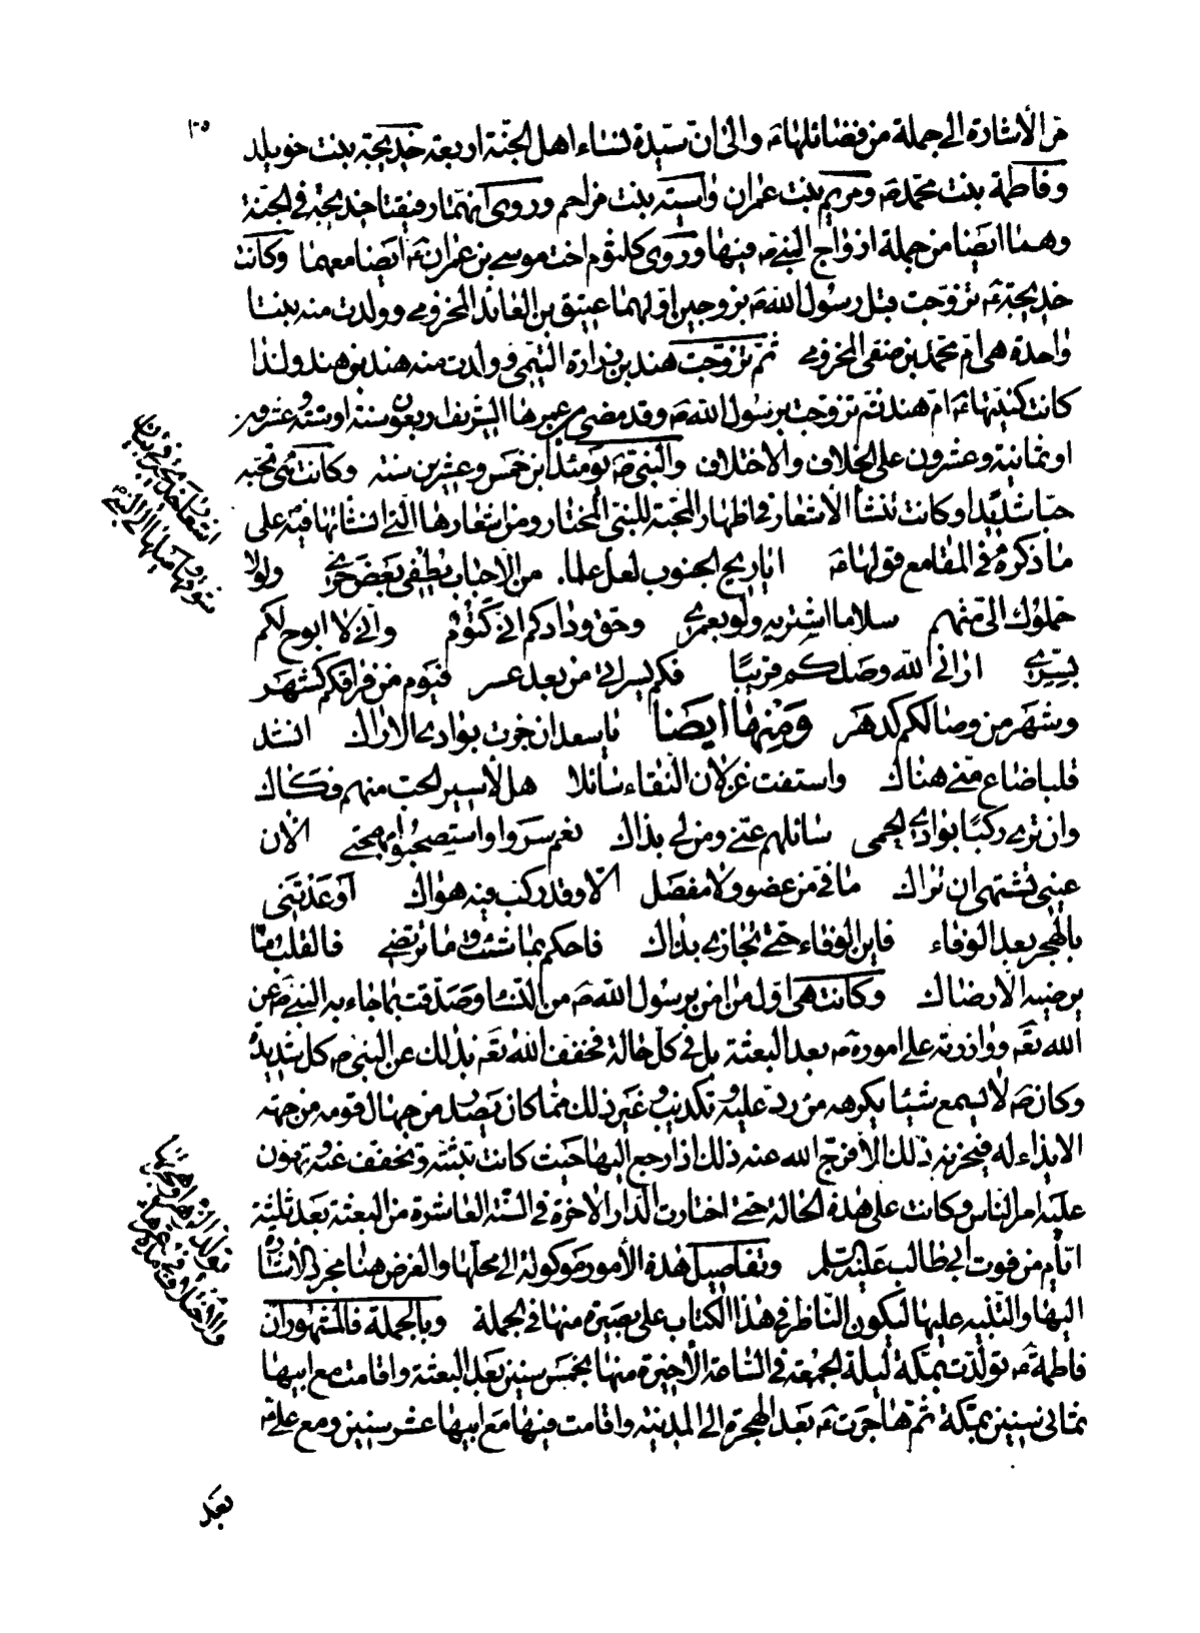 من الأشارة الى جملة من فضائلها ع والى ان سيدة نساء اهل الجنة اربعة خديجة بنت خويلد
وفاطمة بنت محمد ص ومريم بنت عمران واسية بنت مزاحم وروى انهما رفيقتا خديجة في الجنة
وهما ايضا من جملة ازواج النبي ص فيها وروى كلثوم اخت موسى بن عمران ع ايضا معهما وكانت
خديجة ع تزوجت قبل رسول الله ص بزوجين اولهما عتيق بن العائذ المخزومي وولدت منه بنتا
واحدة هي ام محمد بن صنفى المخزومي ثم تزوجت هند بن زرارة التيمى وولدت منه هند بن هند ولذا
كانت كنيتها ع ام هند ثم تزوجت برسول الله ص وقد مضى من عمرها الشريف اربعون سنة او ستة وعشرون
او ثمانية وعشرون على الخلاف والاختلاف والنبي ص يومئذ ابن خمس وعشرين سنة وكانت هي تحبه
حبا شديدا وكانت تنشأ الاشعار في اظهار المحبة للنبي المختار ومن اشعارها التي انشأتها فيه على
ما ذكره في المقامع قولها ع ايا ريح الجنوب لعل علما من الاحباب يطفى بعض حري ولولا
حملوك الى منهم سلاما اشتريه ولو بعمري وحق ودادكم اني كتوم واني لا ابوح لكم
بسري اراني الله وصلكم قريبا فكم يسر اتى من بعد عسر فيوم من فراقكم كشهر
وشهر من وصالكم كدهر ومنها ايضا يا سعد ان جزت بوادي الاراك انشد
قلبا ضاع مني هناك واستفت غزلان النقاء سائلا هل لاسير الحب منهم فكاك
وان ترى ركبا بوادي الحمى سائلهم عني ومن لي بذاك نعم سروا واستصحبوا مهجتي الان
عيني تشتهي ان تراك ما في من عضو ولا مفصل الا وقد ركب فيه هواك اوعدتني
بالهجر بعد الوفاء فاين الوفاء حتى تجازي بذاك فاحكم بما شئت وما ترتضي فالقلب ما
يرضيه الا رضاك وكانت هي اول من امن برسول الله ص من النساء وصدقت بما جاء به النبي ص عن
الله تع ووازرته على اموره ص بعد البعثة بل في كل حالة فخفف الله تع بذلك عن النبي ص كل شديدة
وكان ص لا يسمع شيئا يكرهه من رد عليه وتكذيب وغير ذلك مما كان يصدر من جهال قومه من جهة
الايذاء له فيحزنه ذلك الا فرج الله عنه ذلك اذا رجع اليها حيث كانت تثبته وتخفف عنه وتهون
عليه امر الناس وكانت على هذه الحالة حتى اختارت الدار الاخرة في السنة العاشرة من البعثة بعد ثلثة
ايام من فوت ابي طالب عليه السلم وتفاصيل هذه الأمور موكولة الى محلها والغرض هنا مجرد الأشارة
اليها والتنبيه عليها ليكون الناظر في هذا الكتاب على بصيرة منها في الجملة وبالجملة فالمشهور ان
فاطمة ع تولدت بمكة ليلة الجمعة في الساعة الأخيرة منها بخمس سنين بعد البعثة واقامت مع ابيها
ثماني سنين بمكة ثم هاجرت ع بعد الهجرة الى المدينة واقامت فيها مع ابيها عشر سنين ومع علي ع
بعد